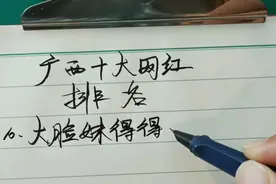 广西十大网红
排名
10.大脸妹得得